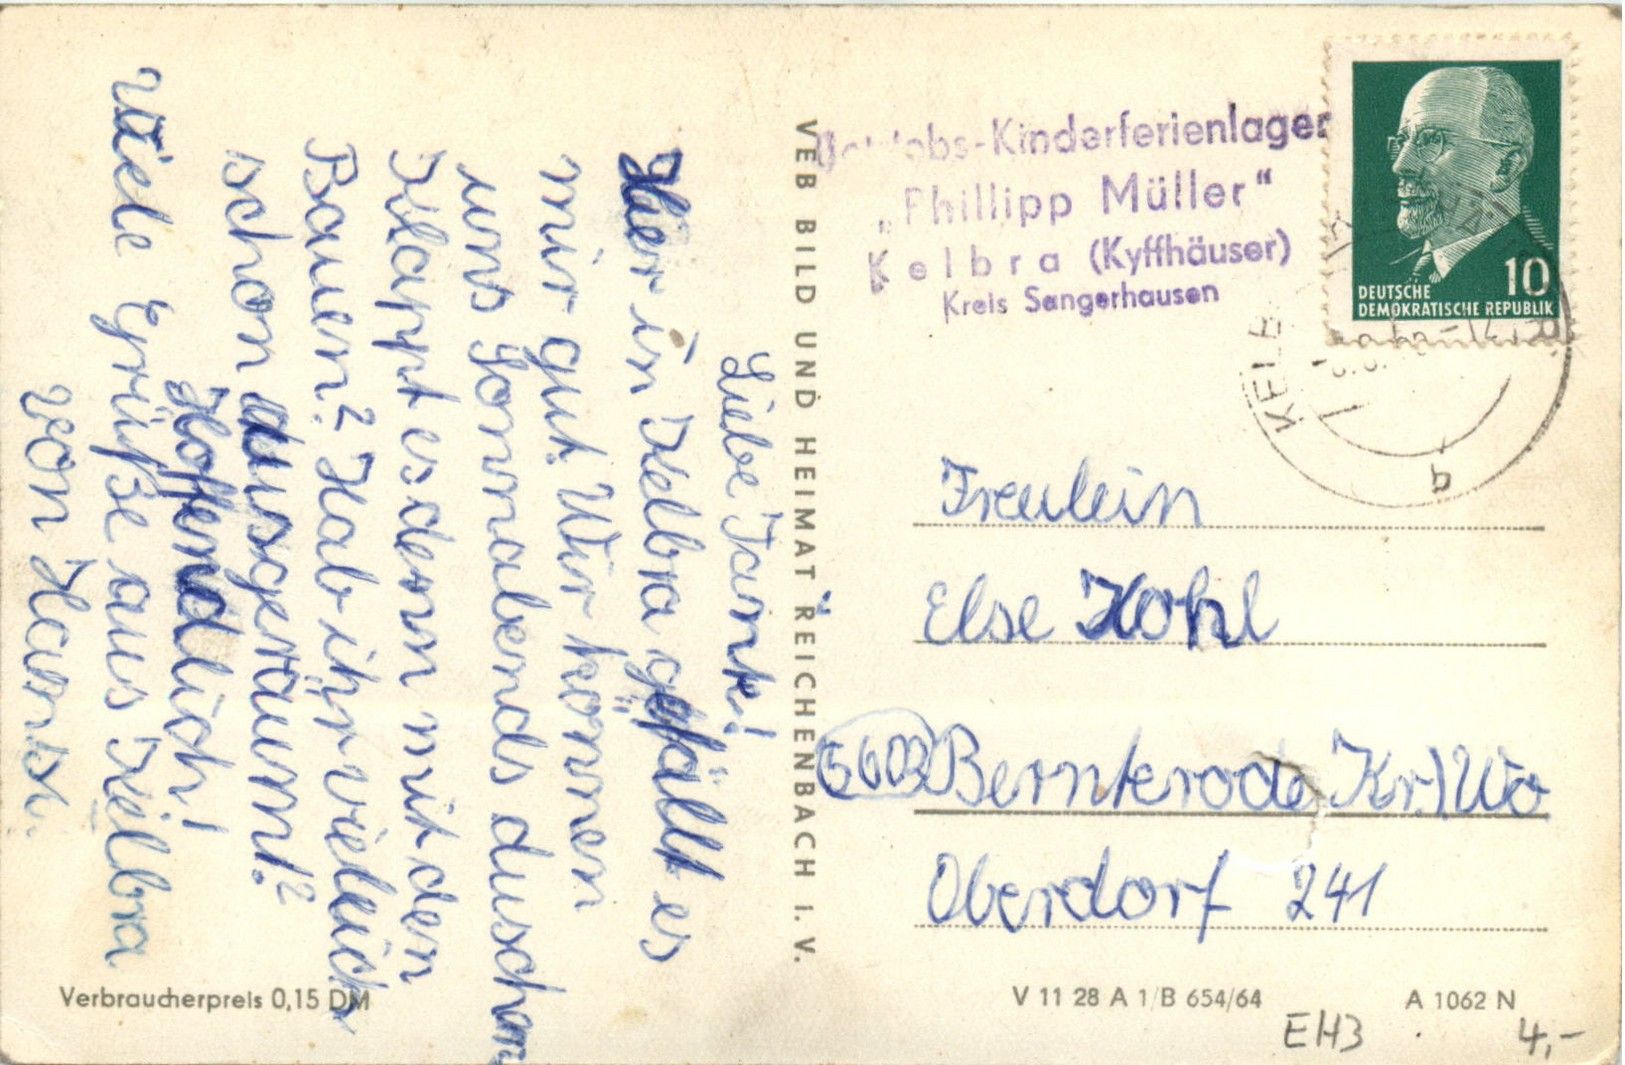 Liebe Tank!
Hier in Kelbra gefällt es
mir gut. Wir können
uns Sonnabends duschen
Klappt es denn mit den
Bauen? Hab ihr vieleich
schon ausgeräumt?
Hoffendlich!
Viele Grüße aus Kelbra
von
VEB BILD UND HEIMAT REICHENBACH I. V.
Betriebs-Kinderferienlager
„Phillipp Müller“
Kelbra (Kyffhäuser)
Kreis Sangerhausen
10
DEUTSCHE
DEMOKRATISCHE REPUBLIK
KELB
b
Freulein
Else Kohl
5603 Bernterode Kr) Wo
Oberdorf 241
Verbraucherpreis 0,15 DM
V 11 28 A 1/B 654/64
A 1062 N
EH3
4,-